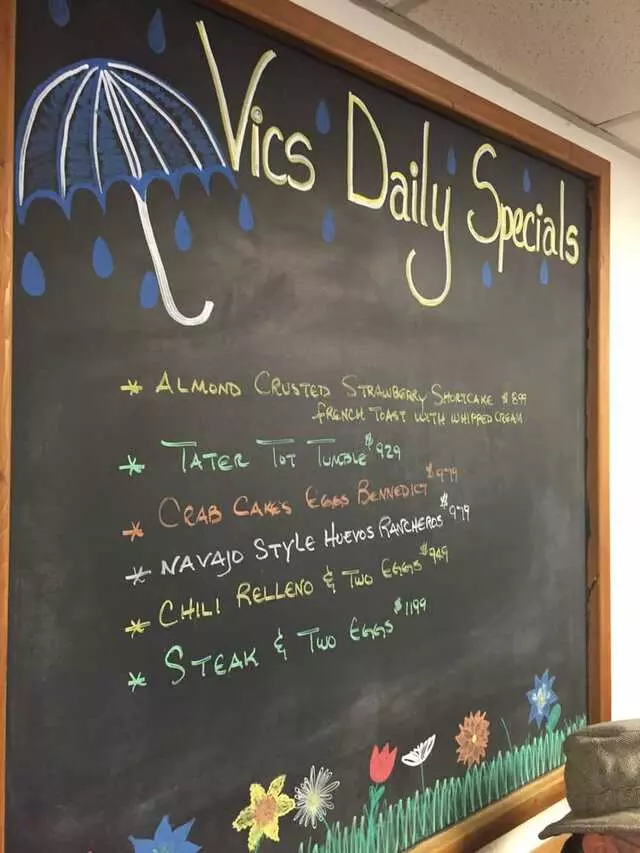 Vics Daily Specials
* Almond Crusted Strawberry Shortcake $8.99
French Toast with Whipped Cream
* Tater Tot Tumble $9.29
* Crab Cakes Eggs Bennedict $9.79
* Navajo Style Huevos Rancheros $9.79
* Chili Relleno & Two Eggs $9.49
* Steak & Two Eggs $11.99